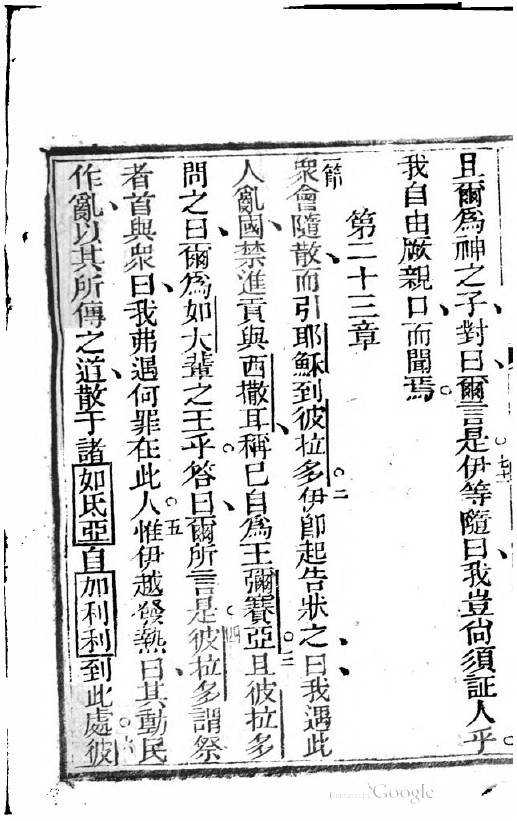 且爾爲神之子對曰爾言是。七十一伊等隨曰我豈尙須証人乎。
我自由厥親口而聞焉。
第二十三章
一節衆會隨散而引耶穌到彼拉多。二伊卽起告狀之曰我遇此
人亂國禁進貢與西撒耳稱已自爲王彌賽亞。三且彼拉多
問之曰爾爲如大輩之王乎。答曰爾所言是。四彼拉多謂祭
者首與衆曰我弗遇何罪在此人。五惟伊越發熱曰其動民
作亂以其所傳之道散于諸如氐亞自加利利到此處。六彼
Google